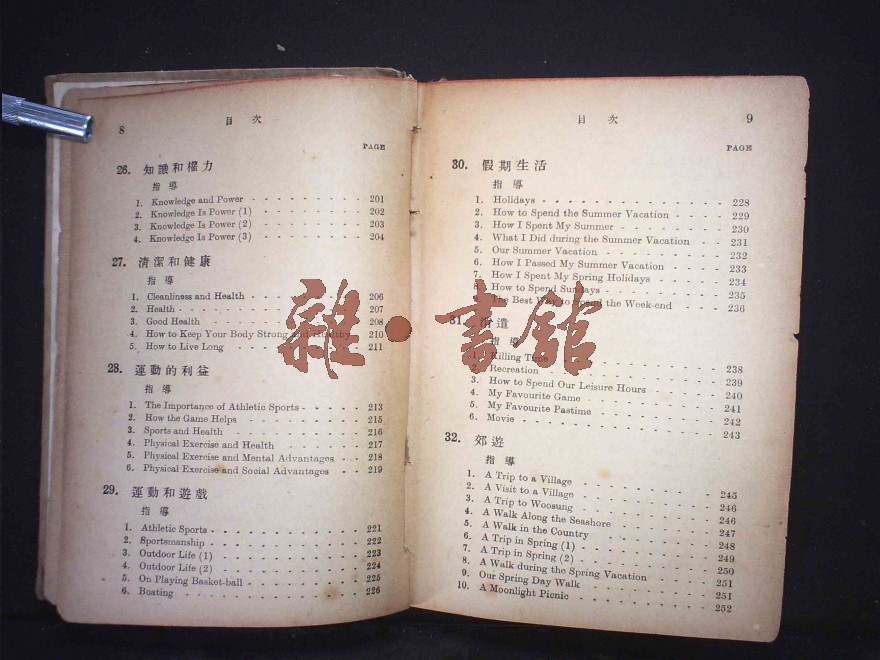 8
目 次
PAGE
26. 知識和權力
指 導
1. Knowledge and Power - - - - - - - - - 201
2. Knowledge Is Power (1) - - - - - - - - 202
3. Knowledge Is Power (2) - - - - - - - - 203
4. Knowledge Is Power (3) - - - - - - - - 204
27. 清潔和健康
指 導
1. Cleanliness and Health - - - 206
2. Health - - - 207
3. Good Health - - - 208
4. How to Keep Your Body Strong and Healthy 210
5. How to Live Long - - - 211
28. 運動的利益
指 導
1. The Importance of Athletic Sports - - - - - 213
2. How the Game Helps - - - - - - - - - 215
3. Sports and Health - - - - - - - - - - 216
4. Physical Exercise and Health - - - - - - - 217
5. Physical Exercise and Mental Advantages - - - 218
6. Physical Exercise and Social Advantages - - - 219
29. 運動和遊戲
指 導
1. Athletic Sports - - - - - - - - - - - 221
2. Sportsmanship - - - - - - - - - - - 222
3. Outdoor Life (1) - - - - - - - - - - - 223
4. Outdoor Life (2) - - - - - - - - - - - 224
5. On Playing Basket-ball - - - - - - - - - 225
6. Boating - - - - - - - - - - - - - 226
目 次
9
PAGE
30. 假期生活
指 導
1. Holidays - - - - - - - - - - - - 228
2. How to Spend the Summer Vacation - - - - 229
3. How I Spent My Summer - - - - - - - - 230
4. What I Did during the Summer Vacation - - 231
5. Our Summer Vacation - - - - - - - - - 232
6. How I Passed My Summer Vacation - - - - 233
7. How I Spent My Spring Holidays - - - - - 234
8. How to Spend Sundays - - - - - - - - 235
9. The Best Way to Spend the Week-end - - - - 236
31. 消遣
指 導
1. Killing Time - - - - - - - - - - 238
2. Recreation - - - - - - - - - - - 239
3. How to Spend Our Leisure Hours - - - - - 240
4. My Favourite Game - - - - - - - - - 241
5. My Favourite Pastime - - - - - - - - 242
6. Movie - - - - - - - - - - - - - 243
32. 郊遊
指 導
1. A Trip to a Village - - - - - - - - - 245
2. A Visit to a Village - - - - - - - - - 246
3. A Trip to Woosung - - - - - - - - - 246
4. A Walk Along the Seashore - - - - - - - 247
5. A Walk in the Country - - - - - - - - 248
6. A Trip in Spring (1) - - - - - - - - - 249
7. A Trip in Spring (2) - - - - - - - - - 250
8. A Walk during the Spring Vacation - - - - 251
9. Our Spring Day Walk - - - - - - - - - 251
10. A Moonlight Picnic - - - - - - - - - 252
雜·書館